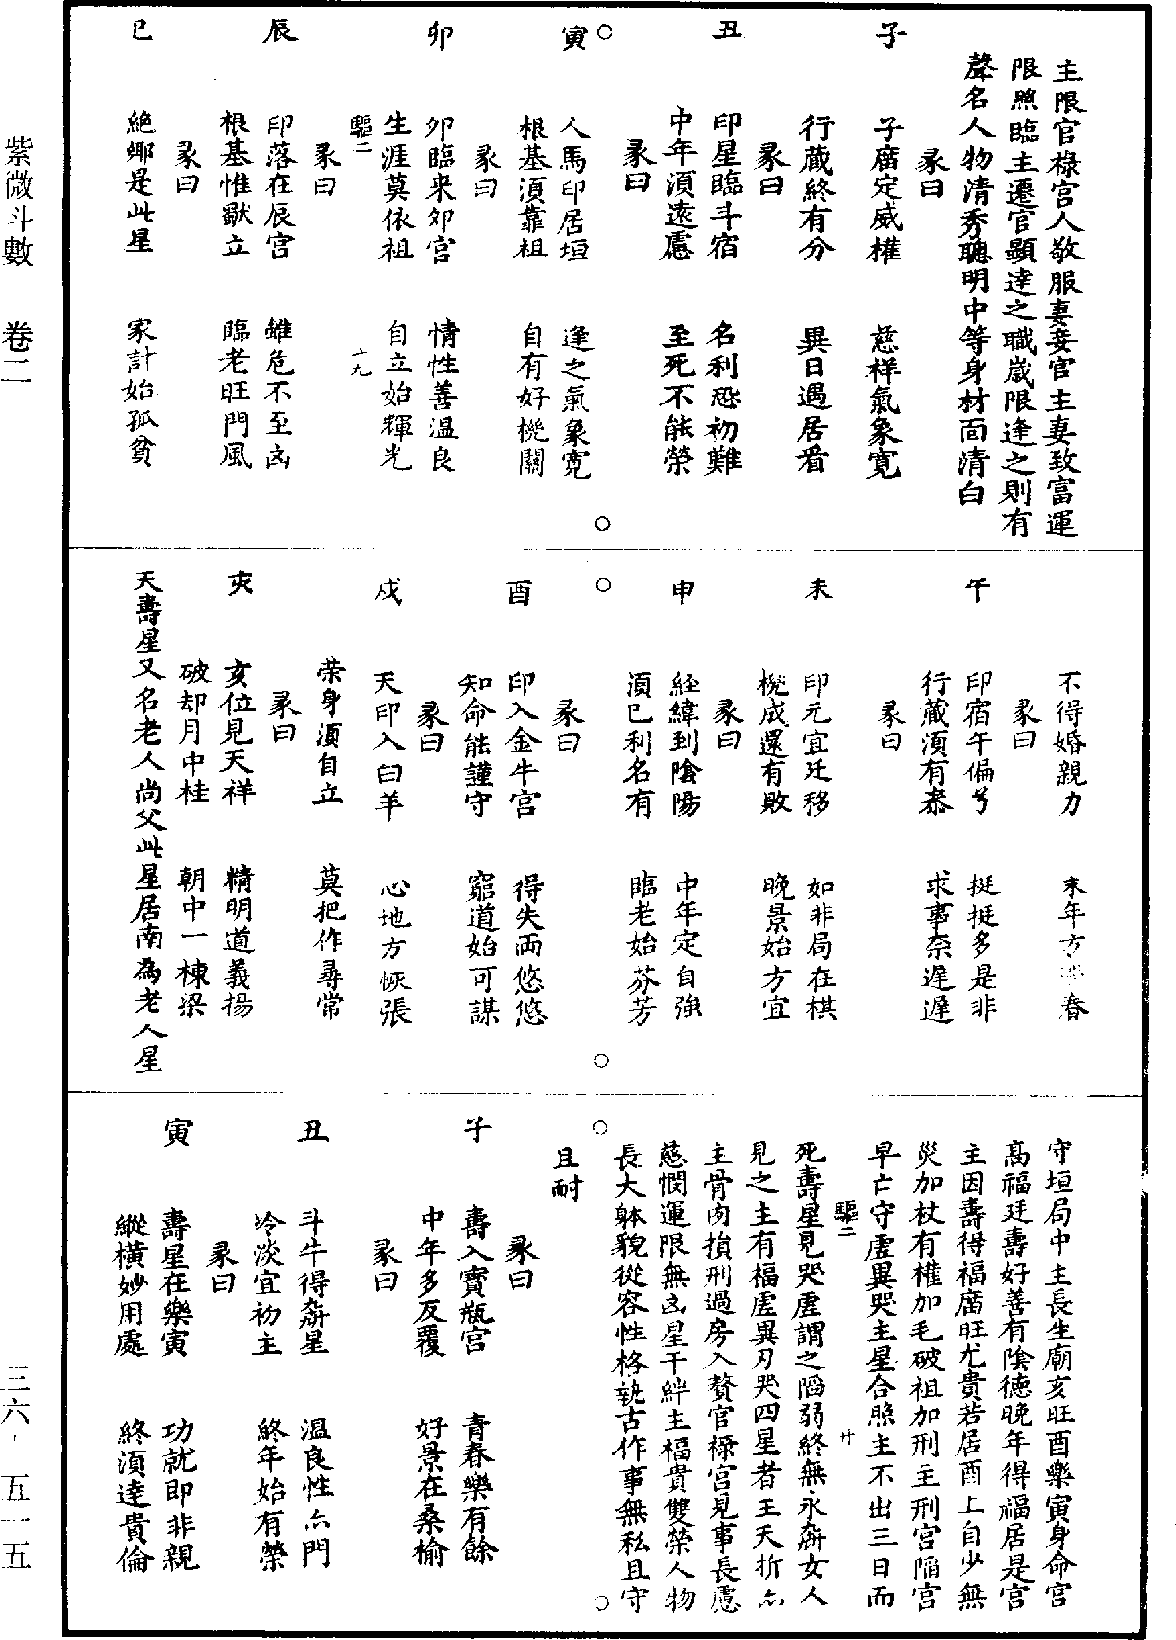 紫微斗數 卷二
三六－五一五
主限官祿宮人敬服妻妾官主妻致富運
限照臨主遷官顯達之職歲限逢之則有
聲名人物清秀聰明中等身材面清白
彖曰
子 子廣定威權 慈祥氣象寬
行藏終有分 異日遇居看
彖曰
丑 印星臨斗宿 名利恐初難
中年須遠慮 至死不能榮
彖曰
寅 人馬印居垣 逢之氣象寬
根基須靠祖 自有好機關
彖曰
卯 卯臨來卯宮 情性善温良
生涯莫依祖 自立始輝光
驅二 十九
彖曰
辰 印落在辰宮 雖危不至凶
根基惟獸立 臨老旺門風
彖曰
巳 絶鄉是此星 家計始孤貧
不得婚親力 末年方 春
彖曰
午 印宿午偏兮 挺挺多是非
行藏須有泰 求事柰遲遲
彖曰
未 印元宜迁移 如非局在棋
機成還有敗 晚景始方宜
彖曰
申 經緯到陰陽 中年定自強
須已利名有 臨老始芬芳
彖曰
酉 印入金牛宮 得失兩悠悠
知命能謹守 窮道始可謀
彖曰
戍 天印入白羊 心地方恢張
荣身須自立 莫把作尋常
彖曰
亥 亥位見天祥 精明道義揚
破却月中桂 朝中一棟梁
天壽星又名老人尚父此星居南為老人星
守垣局中主長生廟亥旺酉樂寅身命宮
高福廷壽好善有陰德晚年得福居是宮
主因壽得福廣旺尤貴若居酉上自少無
災加杖有權加毛破祖加刑主刑宮陷宮
早亡守虛異哭主星合照主不出三日而
驅二 廿
死壽星見哭虛謂之陷弱終無永齊女人
見之主有福虛異刃哭四星者王天折亦
主骨肉損刑過房入贅官祿宮見事長慮
慈憫運限無凶星干絆主福貴雙榮人物
長大躰貌從容性格執古作事無私且守
且耐
彖曰
子 壽入寶瓶宮 青春樂有餘
中年多反覆 好景在桑榆
彖曰
丑 斗牛得齊星 温良性亦門
冷淡宜初主 終年始有榮
彖曰
寅 壽星在樂寅 功就即非親
縱橫妙用處 終須達貴倫